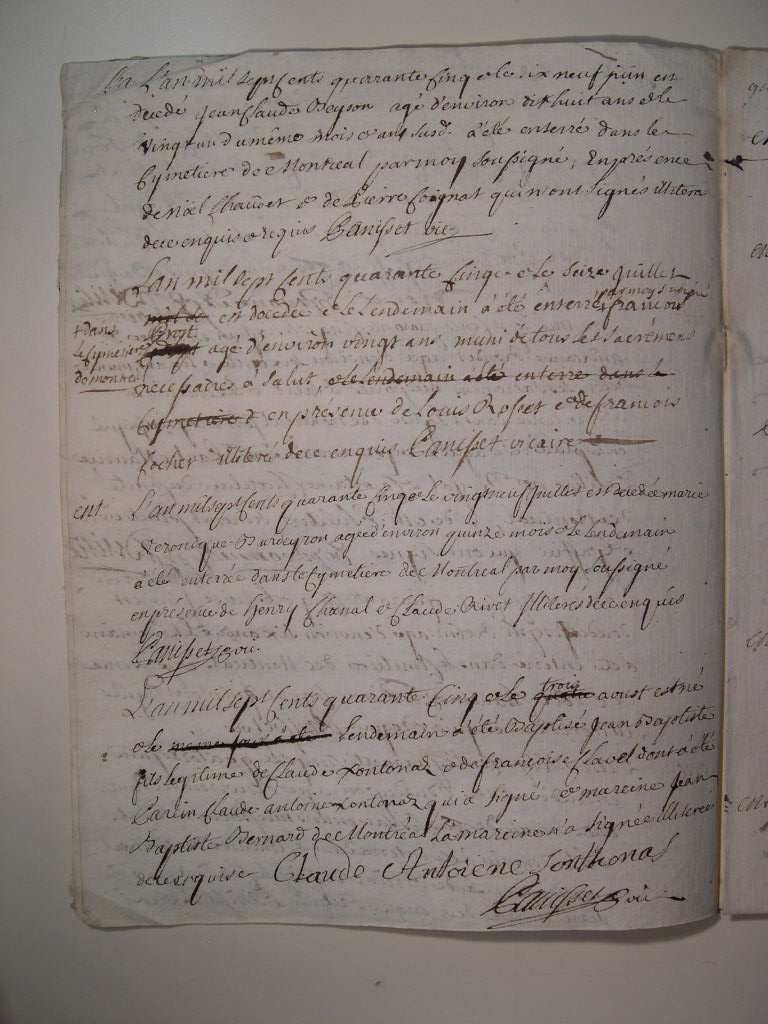 L'an mil sept Cents quarante Cinq & le dix neuf juin est
decedé Jean Claude Beyson agé d'environ dix huit ans & le
vingt un du même mois & an susd. a été enterré dans le
Cymetiere de Montreal par moy soussigné, En présence
de Noël Chauvet & de Pierre Coignat qui n'ont signés illitera
de ce enquis & requis Canisset vic
L'an mil sept Cents quarante Cinq & le seize Juillet
est decedé & le lendemain a été enterré par moy soussigné françois
+ dans le Cymetiere de montreal
agé d'environ vingt ans, muni de tous les sacremens
necessaires a salut, & le lendemain a été enterre dans le
Cymetiere en présence de Louis Rosset & de francois
focher illiteré de ce enquis Canisset vicaire
ent L'an mil sept Cents quarante Cinq & le vingt neuf Juillet est decedée marie
Veronique Burdeyron agée d'environ quinze mois & le Lendemain
a été enterrée dans le Cymetiere de Montreal par moy soussigné
en présence de henry Chanal & Claude Rivet illiterés de ce enquis
Canisset vic.
L'an mil sept Cents quarante Cinq & le quatre trois aoust est né
& le même jour a été Lendemain a été Baptisé Jean Baptiste
fils legitime de Claude Sontonaz & de françoise Clavel dont a été
Parrin Claude antoine Sontonaz qui a signé & mareine Jean
Baptiste Bernard de Montréal La mareine n'a signée illiterée
de ce requise Claude Antoiene Sonthonas
Canisset vic